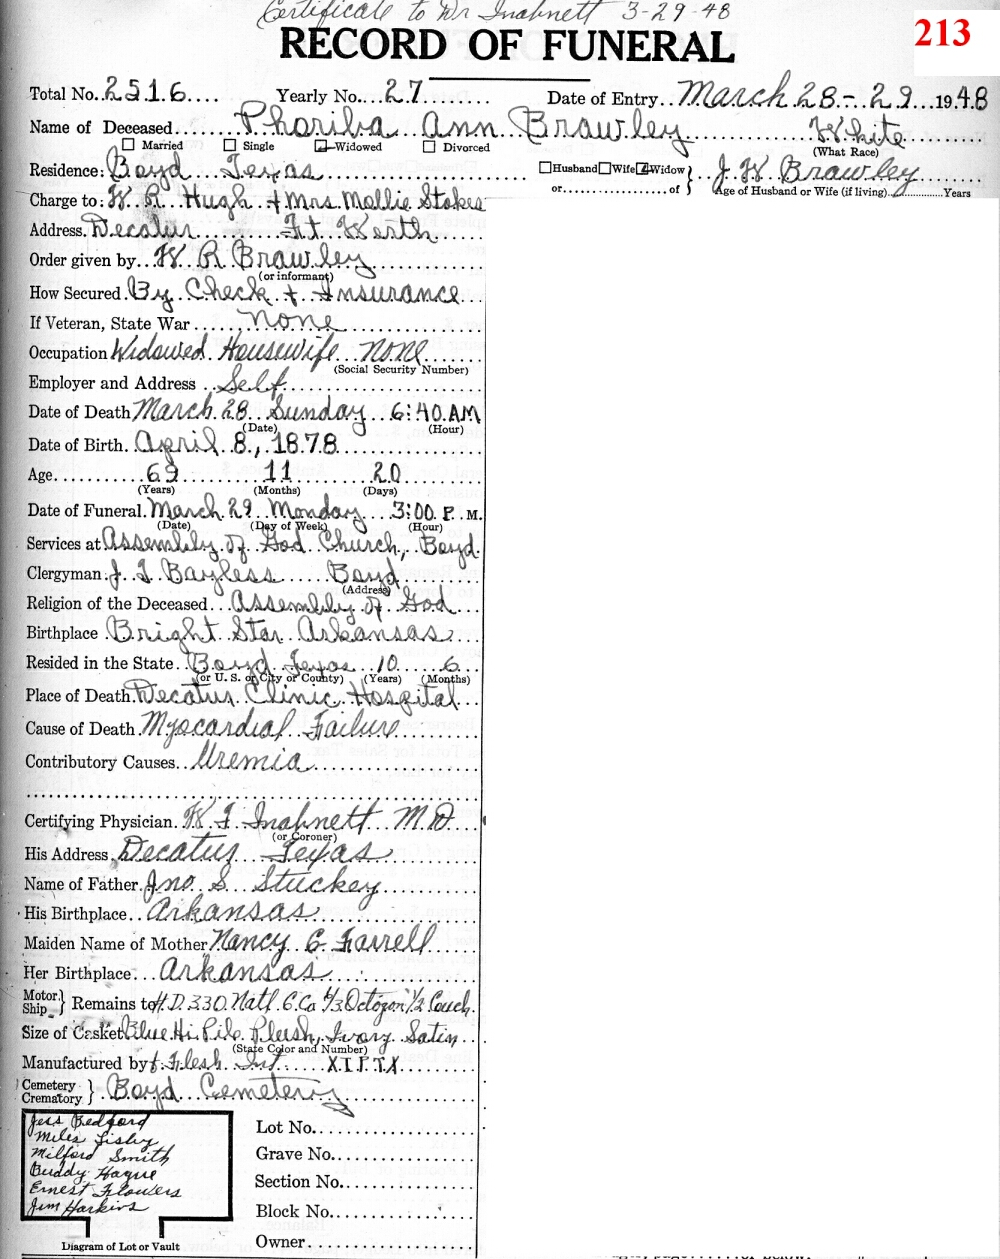 Certificate to Dr Inabnett 3-29-48
213
RECORD OF FUNERAL
Total No. 2516 Yearly No. 27 Date of Entry March 28-29 1948
Name of Deceased Phoriba Ann Brawley White
(What Race)
Married Single Widowed Divorced
Residence: Boyd Texas Husband Wife Widow J. W. Brawley
or of Age of Husband or Wife (if living) Years
Charge to: W. R. Hugh + Mrs. Mollie Stokes
Address. Decatur Ft Worth
Order given by W R Brawley
(or informant)
How Secured By Check + Insurance
If Veteran, State War none
Occupation Widowed Housewife none
(Social Security Number)
Employer and Address Self
Date of Death March 28 Sunday 6:40 AM
(Date) (Hour)
Date of Birth April 8, 1878
Age 69 11 20
(Years) (Months) (Days)
Date of Funeral March 29 Monday 3:00 P. M.
(Date) (Day of Week) (Hour)
Services at Assembly of God Church, Boyd
Clergyman J. I Bayless Boyd
(Address)
Religion of the Deceased Assembly of God
Birthplace Bright Star Arkansas
Resided in the State Boyd Texas 10 6
(or U. S. or City or County) (Years) (Months)
Place of Death Decatur Clinic Hospital
Cause of Death Myocardial Failure
Contributory Causes Uremia
Certifying Physician W F Inabnett M.D.
(or Coroner)
His Address Decatur Texas
Name of Father Jno S Stuckey
His Birthplace Arkansas
Maiden Name of Mother Nancy E Farrell
Her Birthplace Arkansas
Motor Ship } Remains to H.D. 330 Natl. C. Co 6/3 Octogon 1/2 Couch
Size of Casket Blue Hi Pile Plush, Ivory Satin
(State Color and Number)
Manufactured by Flesh Int XIFTX
Cemetery Crematory } Boyd Cemetery
Jess Bedford
Miles
Milford Smith
Buddy Hague
Ernest Flowers
Jim Harkins
Lot No.
Grave No.
Section No.
Block No.
Owner
Diagram of Lot or Vault